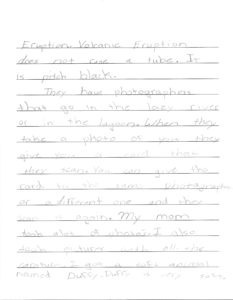 Eruption. Volcanic Eruption
does not use a tube. It
is pitch black.
They have photographers
that go in the lazy river
or in the lagoon. When they
take a photo of you they
give you a card then
they scan. You can give the
card to the same photographer
or a different one and they
scan it again. My mom
took alot of photos. I also
took pictures with all the
I got a
named Duffy. Duffy is my